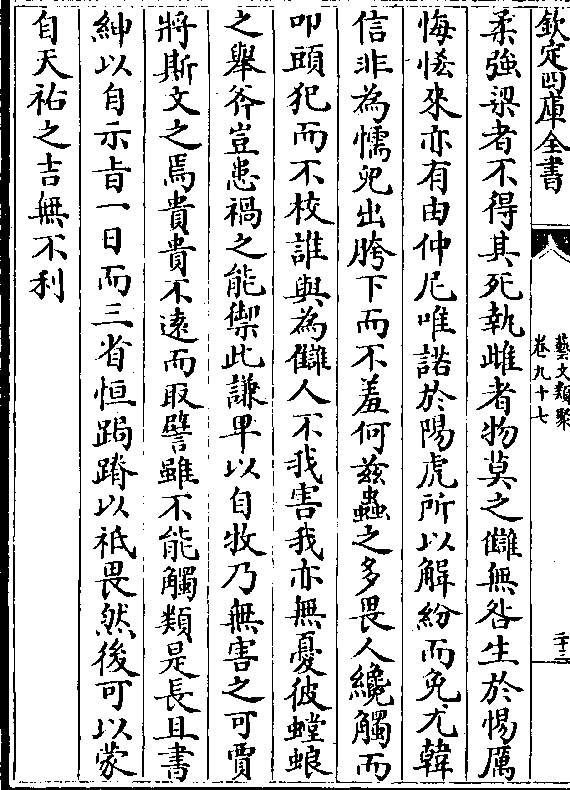 欽定四庫全書
藝文類聚
卷九十七
二十三
柔強梁者不得其死執雌者物莫之讎無咎生於惕厲
悔悋來亦有由仲尼唯諾於陽虎所以解紛而免尤韓
信非為懦兒出胯下而不羞何兹蟲之多畏人纔觸而
叩頭犯而不校誰與為讎人不我害我亦無憂彼螳蜋
之舉斧豈患禍之能禦此謙卑以自牧乃無害之可賈
將斯文之焉貴貴不遠而取譬雖不能觸類是長且書
紳以自示㫖一日而三省恒跼蹐以祗畏然後可以蒙
自天祐之吉無不利